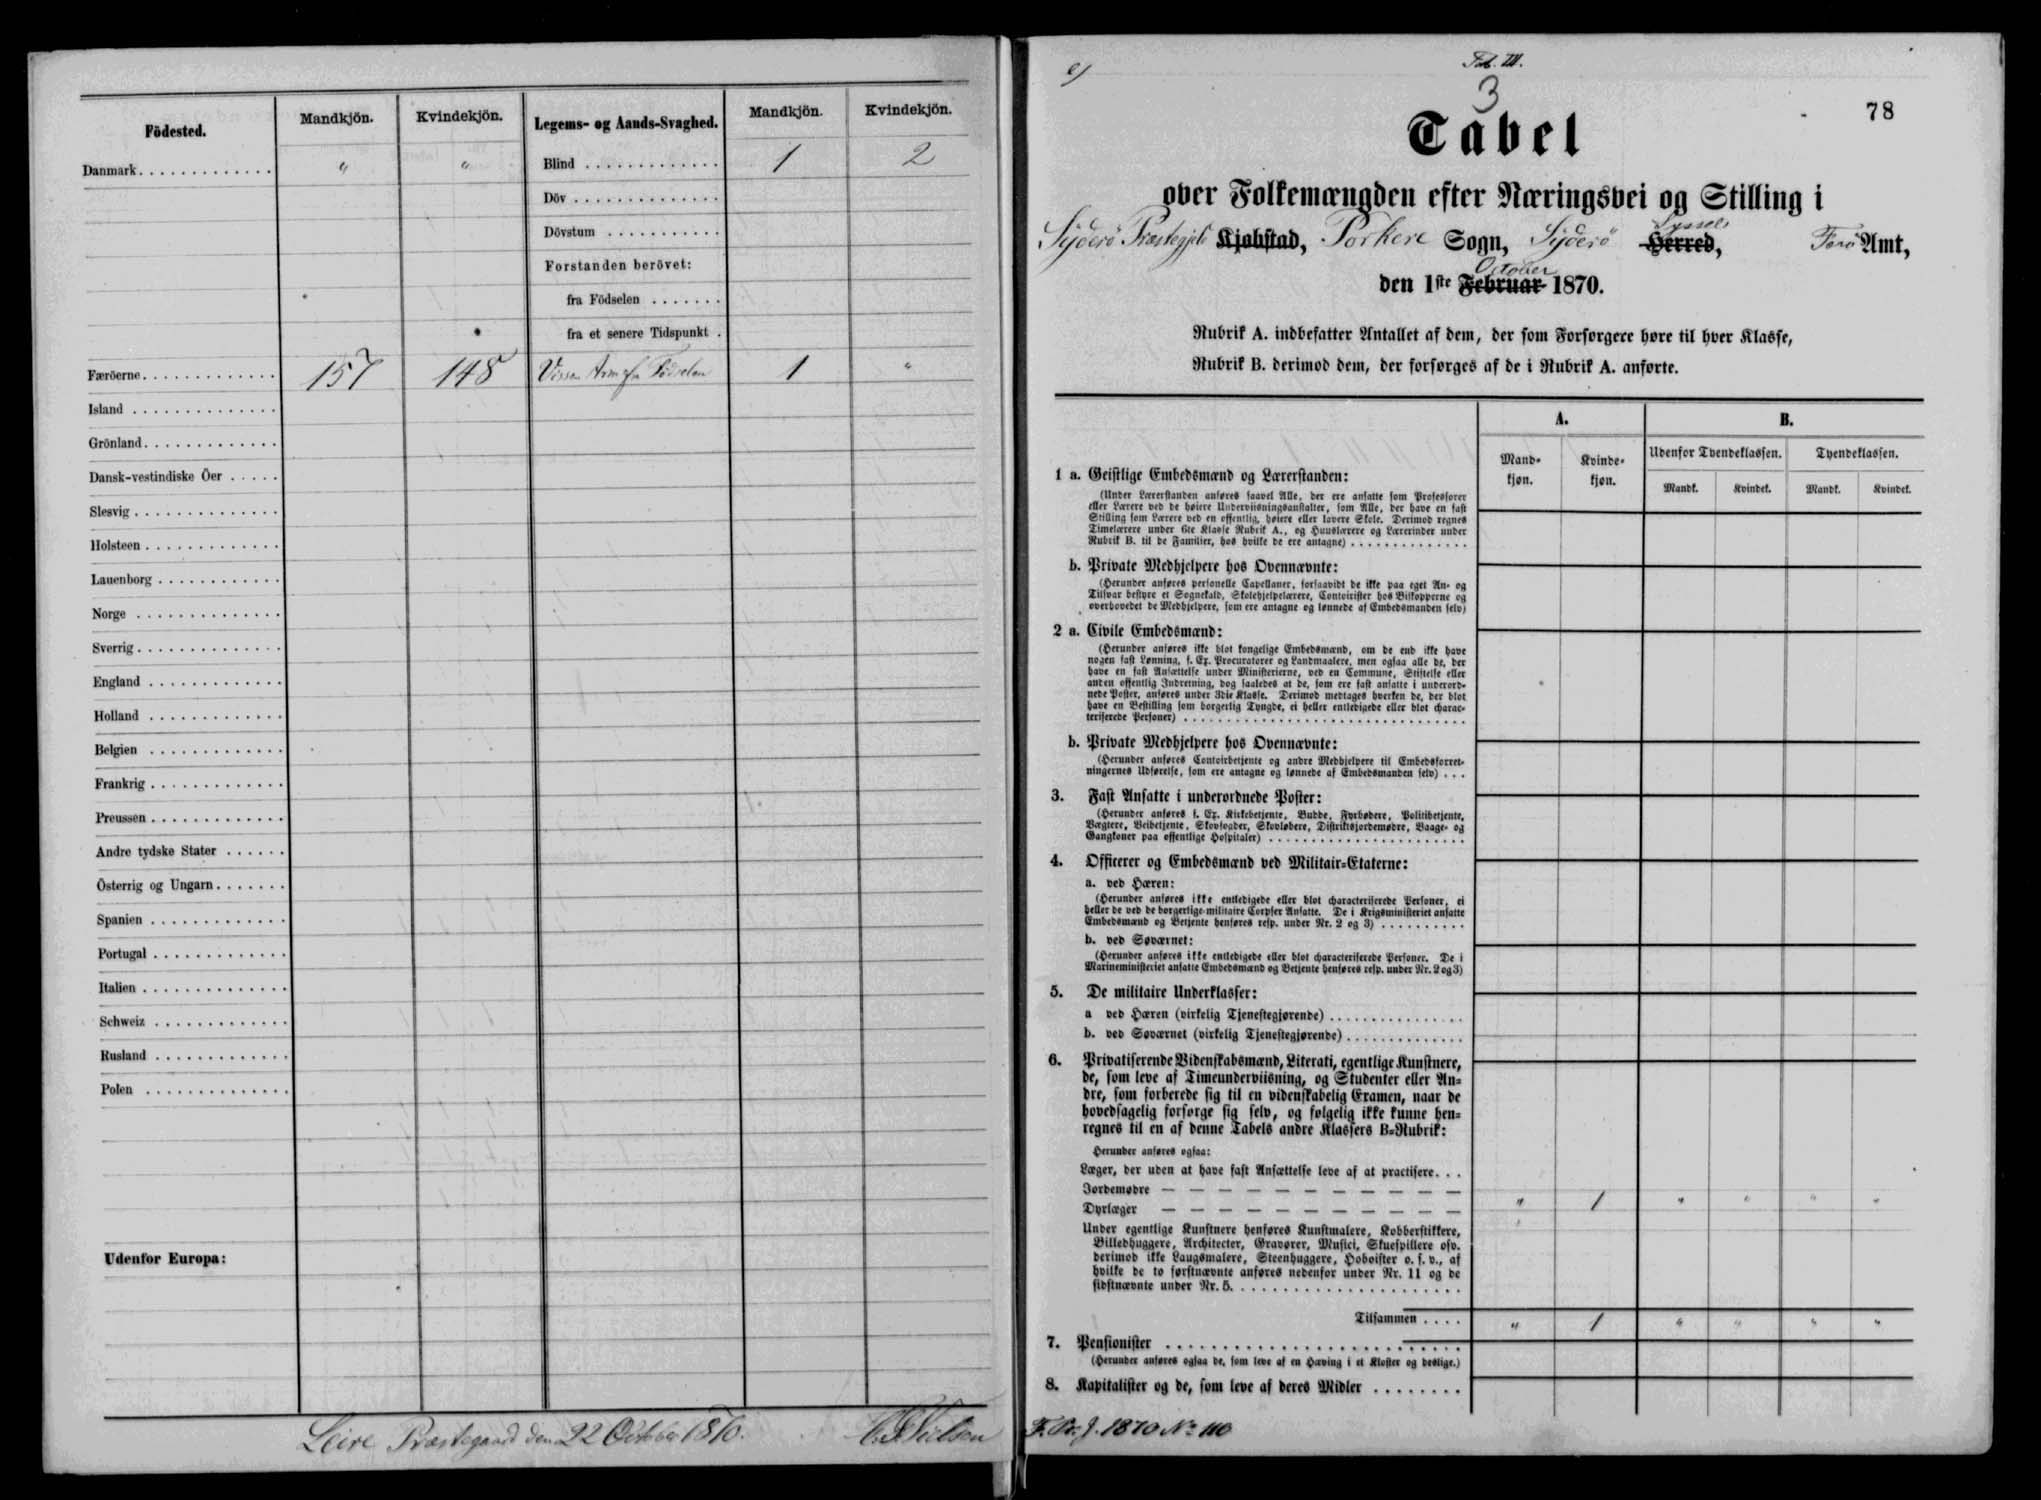 Födested. Mandkjön. Kvindekjön. Legems- og Aands-Svaghed. Mandkjön. Kvindekjön.
Danmark. . . . . . . . . . . . . " " Blind . . . . . . . . . . . . . 1 2
Döv . . . . . . . . . . . . . .
Dövstum . . . . . . . . . . .
Forstanden berövet:
fra Födselen . . . . . . .
fra et senere Tidspunkt .
Færöerne. . . . . . . . . . . . . 157 148 Vissen Arm fra Födselen 1 "
Island . . . . . . . . . . . . . .
Grönland. . . . . . . . . . . . .
Dansk-vestindiske Öer . . . . .
Slesvig . . . . . . . . . . . . . .
Holsteen . . . . . . . . . . . . .
Lauenborg . . . . . . . . . . . .
Norge . . . . . . . . . . . . . .
Sverrig . . . . . . . . . . . . . .
England . . . . . . . . . . . . .
Holland . . . . . . . . . . . . .
Belgien . . . . . . . . . . . . .
Frankrig . . . . . . . . . . . . .
Preussen . . . . . . . . . . . . .
Andre tydske Stater . . . . . .
Österrig og Ungarn . . . . . . .
Spanien . . . . . . . . . . . . .
Portugal . . . . . . . . . . . . .
Italien . . . . . . . . . . . . . .
Schweiz . . . . . . . . . . . . .
Rusland . . . . . . . . . . . . .
Polen . . . . . . . . . . . . . .
Udenfor Europa:
Leire Præstegaard den 22 October 1870. Nielsen
e) Tab. III.
3
78
Tabel
over Folkemængden efter Næringsvei og Stilling i
Syssels
Syderö Præstegjeld Kjøbstad, Porkere Sogn, Syderö Herred, Færö Amt,
October
den 1ste Februar 1870.
Rubrik A. indbefatter Antallet af dem, der som Forsørgere høre til hver Klasse,
Rubrik B. derimod dem, der forsørges af de i Rubrik A. anførte.
A. B.
Mand- Kvinde- Udenfor Tyendeklassen. Tyendeklassen.
kjøn. kjøn. Mandk. Kvindek. Mandk. Kvindek.
1 a. Geistlige Embedsmænd og Lærerstanden:
(Under Lærerstanden anføres saavel Alle, der ere ansatte som Professorer
eller Lærere ved de høiere Underviisningsanstalter, som Alle, der have en fast
Stilling som Lærere ved en offentlig, høiere eller lavere Skole. Derimod regnes
Timelærere under 6te Klasse Rubrik A., og Huuslærere og Lærerinder under
Rubrik B. til de Familier, hos hvilke de ere antagne) . . . . . . . . . . . . . .
b. Private Medhjelpere hos Ovennævnte:
(Herunder anføres personelle Capellaner, forsaavidt de ikke paa eget An- og
Tilsvar bestyre et Sognekald, Skolehjelpelærere, Contoirister hos Biskopperne og
overhovedet de Medhjelpere, som ere antagne og lønnede af Embedsmanden selv)
2 a. Civile Embedsmænd:
(Herunder anføres ikke blot kongelige Embedsmænd, om de end ikke have
nogen fast Lønning, f. Ex. Procuratorer og Landmaalere, men ogsaa alle de, der
have en fast Ansættelse under Ministerierne, ved en Commune, Stiftelse eller
anden offentlig Indretning, dog saaledes at de, som ere fast ansatte i underord-
nede Poster, anføres under 3die Klasse. Derimod medtages hverken de, der blot
have en Bestilling som borgerlig Tyngde, ei heller entledigede eller blot charac-
teriserede Personer) . . . . . . . . . . . . . . . . . . . . . . . . . . . . . .
b. Private Medhjelpere hos Ovennævnte:
(Herunder anføres Contoirbetjente og andre Medhjelpere til Embedsforret-
ningernes Udførelse, som ere antagne og lønnede af Embedsmanden selv) . . .
3. Fast Ansatte i underordnede Poster:
(Herunder anføres f. Ex. Kirkebetjente, Budde, Fyrbødere, Politibetjente,
Vægtere, Veibetjente, Skovfogder, Skovløbere, Distriktsjordemødre, Vaage- og
Gangkoner paa offentlige Hospitaler) . . . . . . . . . . . . . . . . . . . . . .
4. Officerer og Embedsmænd ved Militair-Etaterne:
a. ved Hæren:
(Herunder anføres ikke entledigede eller blot characteriserede Personer, ei
heller de ved de borgerlige militaire Corpser Ansatte. De i Krigsministeriet ansatte
Embedsmænd og Betjente henføres resp. under Nr. 2 og 3) . . . . . . . . . .
b. ved Søværnet:
(Herunder anføres ikke entledigede eller blot characteriserede Personer. De i
Marineministeriet ansatte Embedsmænd og Betjente henføres resp. under Nr. 2 og 3)
5. De militaire Underklasser:
a ved Hæren (virkelig Tjenestegjørende) . . . . . . . . . . . . . . . .
b. ved Søværnet (virkelig Tjenestegjørende) . . . . . . . . . . . . . .
6. Privatiserende Videnskabsmænd, Literati, egentlige Kunstnere,
de, som leve af Timeunderviisning, og Studenter eller An-
dre, som forberede sig til en videnskabelig Examen, naar de
hovedsagelig forsørge sig selv, og følgelig ikke kunne hen-
regnes til en af denne Tabels andre Klassers B-Rubrik:
Herunder anføres ogsaa:
Læger, der uden at have fast Ansættelse leve af at practisere. . .
Jordemødre — — — — — — — — — — — " 1 " " " "
Dyrlæger — — — — — — — — — — —
Under egentlige Kunstnere henføres Kunstmalere, Kobberstikkere,
Billedhuggere, Architecter, Gravører, Musici, Skuespillere osv.
derimod ikke Laugsmalere, Steenhuggere, Hoboister o. s. v., af
hvilke de to førstnævnte anføres nedenfor under Nr. 11 og de
sidstnævnte under Nr. 5. . . . . . . . . . . . . . . . . . . . . . .
Tilsammen . . . . " 1 " " " "
7. Pensionister . . . . . . . . . . . . . . . . . . . . . . . .
(Herunder anføres ogsaa de, som leve af en Hæving i et Kloster og deslige.)
8. Kapitalister og de, som leve af deres Midler . . . . . . . .
F. Pr. J. 1870 No 110